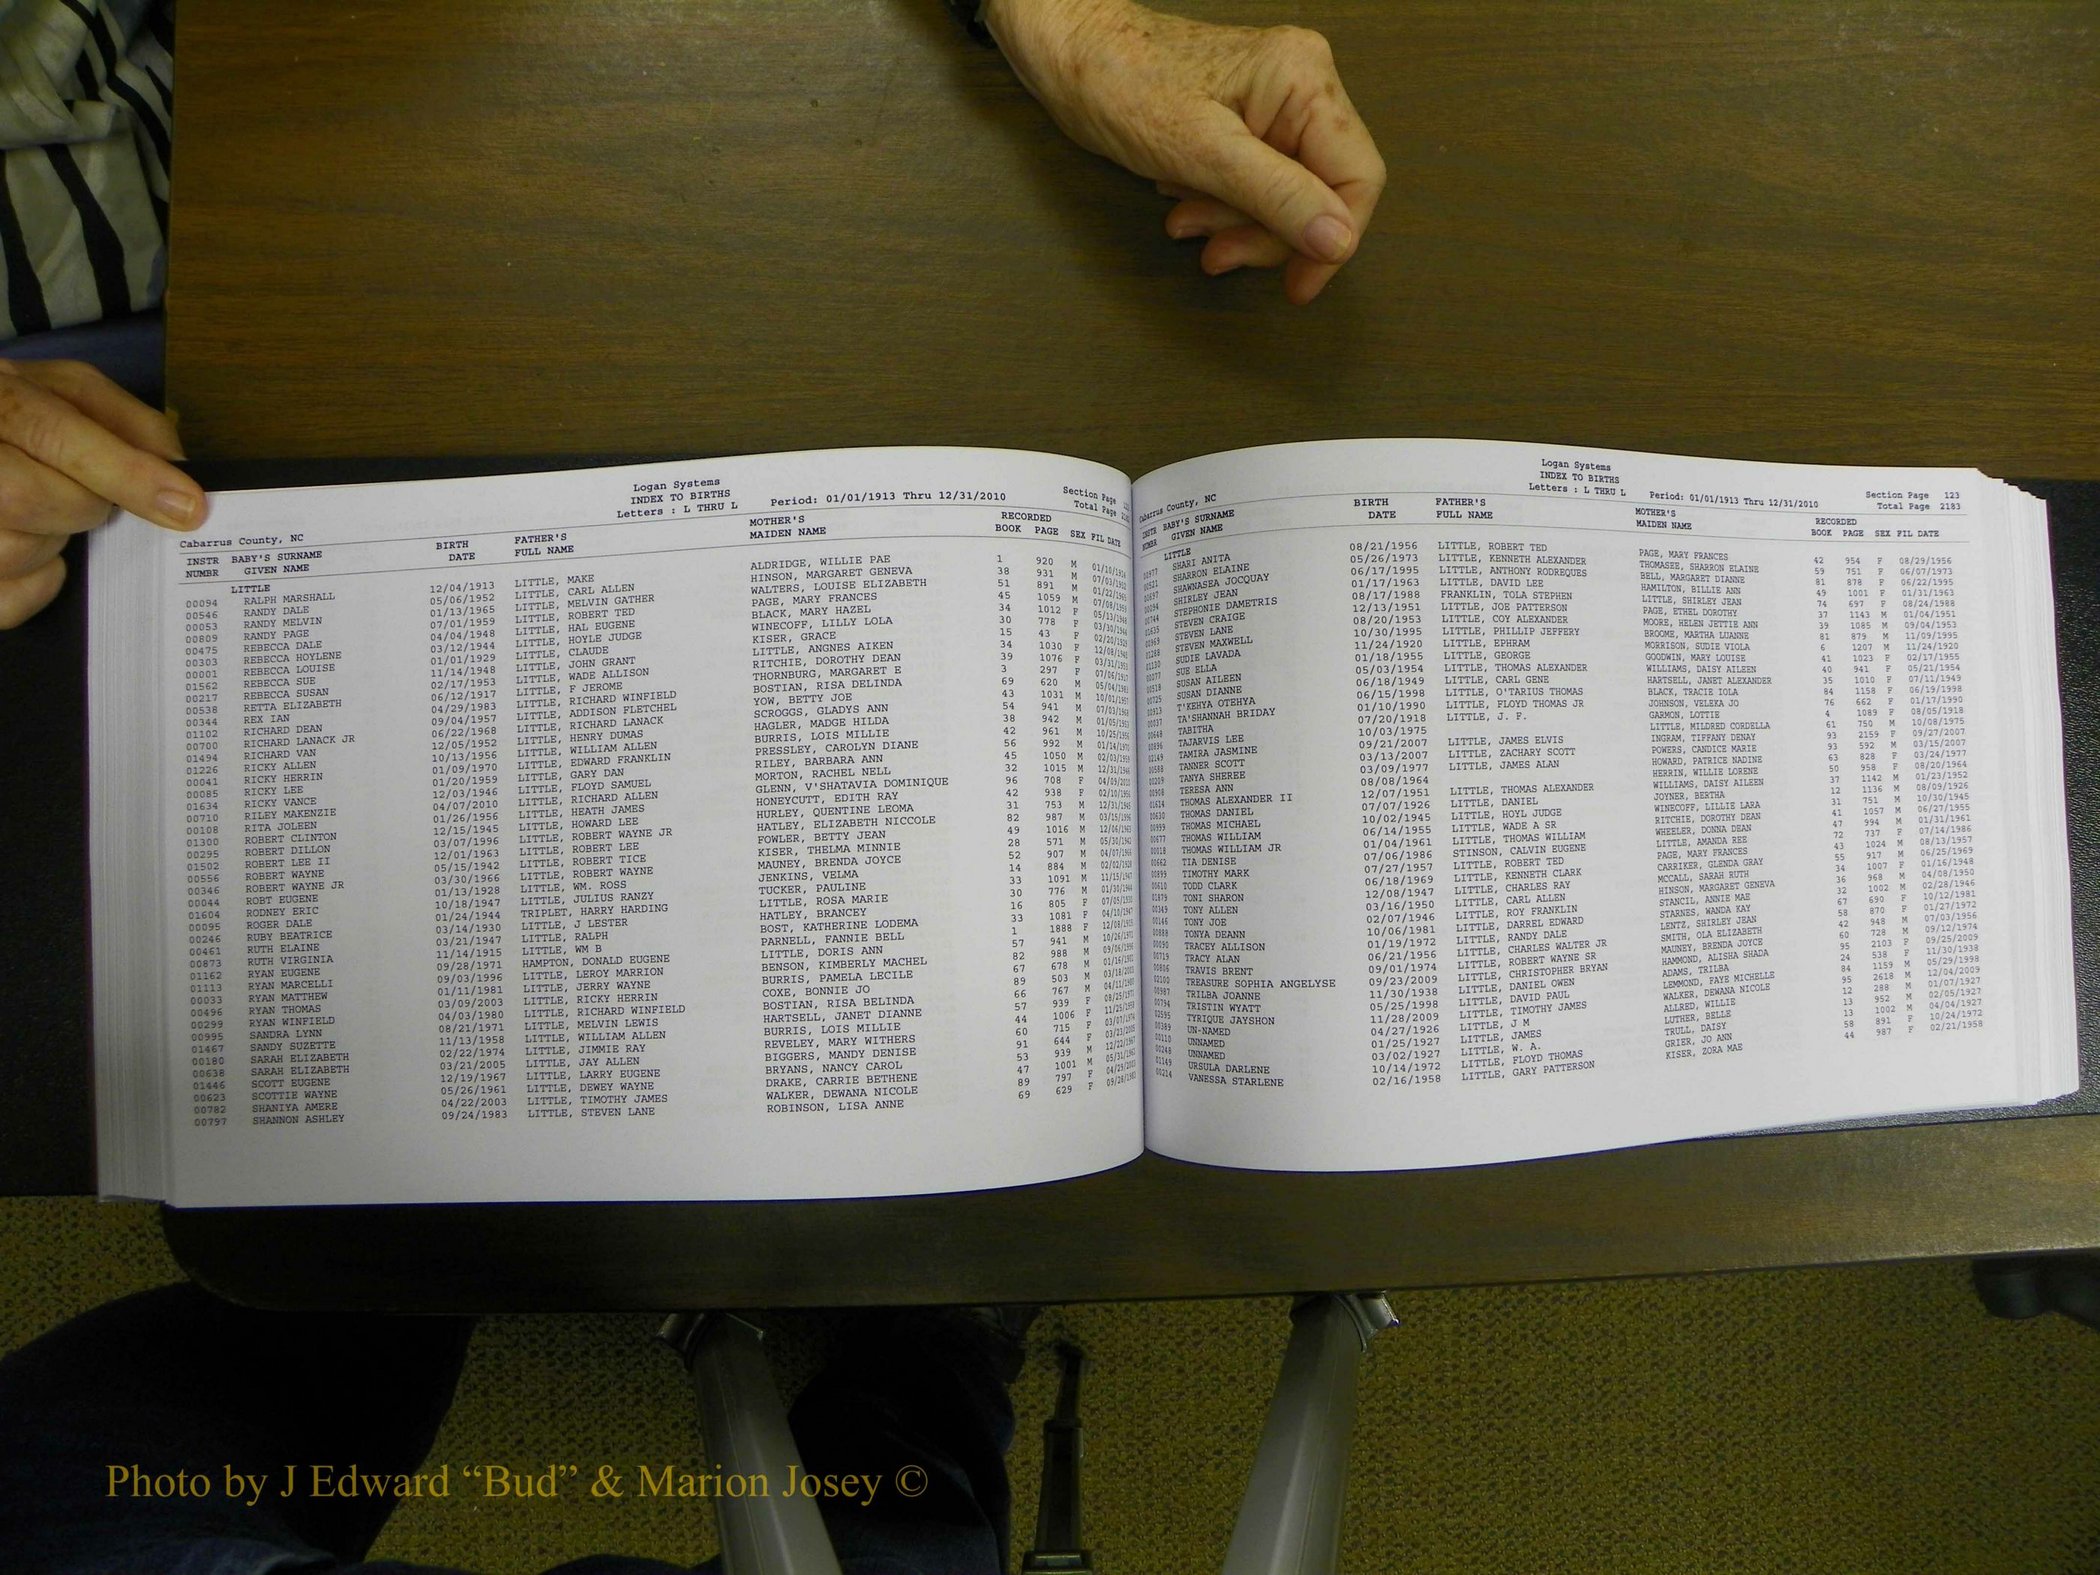 Logan Systems
INDEX TO BIRTHS
Letters : L THRU L Period: 01/01/1913 Thru 12/31/2010
Section Page
Total Page
Cabarrus County, NC
INSTR NUMBR BABY'S SURNAME GIVEN NAME BIRTH DATE FATHER'S FULL NAME MOTHER'S MAIDEN NAME RECORDED BOOK PAGE SEX FIL DATE
LITTLE
00094 RALPH MARSHALL 12/04/1913 LITTLE, MAKE ALDRIDGE, WILLIE PAE 1 920 M
00546 RANDY DALE 05/06/1952 LITTLE, CARL ALLEN HINSON, MARGARET GENEVA 38 931 M
00053 RANDY MELVIN 01/13/1965 LITTLE, MELVIN GATHER WALTERS, LOUISE ELIZABETH 51 891 M
00809 RANDY PAGE 07/01/1959 LITTLE, ROBERT TED PAGE, MARY FRANCES 45 1059 M
00475 REBECCA DALE 04/04/1948 LITTLE, HAL EUGENE BLACK, MARY HAZEL 34 1012 F
00303 REBECCA HOYLENE 03/12/1944 LITTLE, HOYLE JUDGE WINECOFF, LILLY LOLA 30 778 F
00001 REBECCA LOUISE 01/01/1929 LITTLE, CLAUDE KISER, GRACE 15 43 F
01562 REBECCA SUE 11/14/1948 LITTLE, JOHN GRANT LITTLE, ANGNES AIKEN 34 1030 F
00217 REBECCA SUSAN 02/17/1953 LITTLE, WADE ALLISON RITCHIE, DOROTHY DEAN 39 1076 F
00538 RETTA ELIZABETH 06/12/1917 LITTLE, F JEROME THORNBURG, MARGARET E 3 297 F
00344 REX IAN 04/29/1983 LITTLE, RICHARD WINFIELD BOSTIAN, RISA DELINDA 69 620 M
01102 RICHARD DEAN 09/04/1957 LITTLE, ADDISON FLETCHEL YOW, BETTY JOE 43 1031 M
00700 RICHARD LANACK JR 06/22/1968 LITTLE, RICHARD LANACK SCROGGS, GLADYS ANN 54 941 M
01494 RICHARD VAN 12/05/1952 LITTLE, HENRY DUMAS HAGLER, MADGE HILDA 38 942 M
01226 RICKY ALLEN 10/13/1956 LITTLE, WILLIAM ALLEN BURRIS, LOIS MILLIE 42 961 M
00041 RICKY HERRIN 01/09/1970 LITTLE, EDWARD FRANKLIN PRESSLEY, CAROLYN DIANE 56 992 M
00085 RICKY LEE 01/20/1959 LITTLE, GARY DAN RILEY, BARBARA ANN 45 1050 M
01634 RICKY VANCE 12/03/1946 LITTLE, FLOYD SAMUEL MORTON, RACHEL NELL 32 1015 M
00710 RILEY MAKENZIE 04/07/2010 LITTLE, RICHARD ALLEN GLENN, V'SHATAVIA DOMINIQUE 96 708 F
00108 RITA JOLEEN 01/26/1956 LITTLE, HEATH JAMES HONEYCUTT, EDITH RAY 42 938 F
01300 ROBERT CLINTON 12/15/1945 LITTLE, HOWARD LEE HURLEY, QUENTINE LEOMA 31 753 M
00295 ROBERT DILLON 03/07/1996 LITTLE, ROBERT WAYNE JR HATLEY, ELIZABETH NICCOLE 82 987 M
01502 ROBERT LEE II 12/01/1963 LITTLE, ROBERT LEE FOWLER, BETTY JEAN 49 1016 M
00556 ROBERT WAYNE 05/15/1942 LITTLE, ROBERT TICE KISER, THELMA MINNIE 28 571 M
00346 ROBERT WAYNE JR 03/30/1966 LITTLE, ROBERT WAYNE MAUNEY, BRENDA JOYCE 52 907 M
00044 ROBT EUGENE 01/13/1928 LITTLE, WM. ROSS JENKINS, VELMA 14 884 M
01604 RODNEY ERIC 10/18/1947 LITTLE, JULIUS RANZY TUCKER, PAULINE 33 1091 M
00095 ROGER DALE 01/24/1944 TRIPLET, HARRY HARDING LITTLE, ROSA MARIE 30 776 M
00246 RUBY BEATRICE 03/14/1930 LITTLE, J LESTER HATLEY, BRANCEY 16 805 F
00461 RUTH ELAINE 03/21/1947 LITTLE, RALPH BOST, KATHERINE LODEMA 33 1081 F
00873 RUTH VIRGINIA 11/14/1915 LITTLE, WM B PARNELL, FANNIE BELL 1 1888 F
01162 RYAN EUGENE 09/28/1971 HAMPTON, DONALD EUGENE LITTLE, DORIS ANN 57 941 M
01113 RYAN MARCELLI 09/03/1996 LITTLE, LEROY MARRION BENSON, KIMBERLY MACHEL 82 988 M
00033 RYAN MATTHEW 01/11/1981 LITTLE, JERRY WAYNE BURRIS, PAMELA LECILE 67 678 M
00496 RYAN THOMAS 03/09/2003 LITTLE, RICKY HERRIN COXE, BONNIE JO 89 503 M
00299 RYAN WINFIELD 04/03/1980 LITTLE, RICHARD WINFIELD BOSTIAN, RISA BELINDA 66 767 M
00995 SANDRA LYNN 08/21/1971 LITTLE, MELVIN LEWIS HARTSELL, JANET DIANNE 57 939 F
01467 SANDY SUZETTE 11/13/1958 LITTLE, WILLIAM ALLEN BURRIS, LOIS MILLIE 44 1006 F
00180 SARAH ELIZABETH 02/22/1974 LITTLE, JIMMIE RAY REVELEY, MARY WITHERS 60 715 F
00638 SARAH ELIZABETH 03/21/2005 LITTLE, JAY ALLEN BIGGERS, MANDY DENISE 91 644 F
01446 SCOTT EUGENE 12/19/1967 LITTLE, LARRY EUGENE BRYANS, NANCY CAROL 53 939 M
00623 SCOTTIE WAYNE 05/26/1961 LITTLE, DEWEY WAYNE DRAKE, CARRIE BETHENE 47 1001 M
00782 SHANIYA AMERE 04/22/2003 LITTLE, TIMOTHY JAMES WALKER, DEWANA NICOLE 89 797 F
00797 SHANNON ASHLEY 09/24/1983 LITTLE, STEVEN LANE ROBINSON, LISA ANNE 69 629 F
Logan Systems
INDEX TO BIRTHS
Letters : L THRU L Period: 01/01/1913 Thru 12/31/2010
Section Page 123
Total Page 2183
Cabarrus County, NC
INSTR NUMBR BABY'S SURNAME GIVEN NAME BIRTH DATE FATHER'S FULL NAME MOTHER'S MAIDEN NAME RECORDED BOOK PAGE SEX FIL DATE
LITTLE
00977 SHARI ANITA 08/21/1956 LITTLE, ROBERT TED PAGE, MARY FRANCES 42 954 F 08/29/1956
00521 SHARRON ELAINE 05/26/1973 LITTLE, KENNETH ALEXANDER THOMASEE, SHARRON ELAINE 59 751 F 06/07/1973
00697 SHAWNASEA JOCQUAY 06/17/1995 LITTLE, ANTHONY RODREQUES BELL, MARGARET DIANNE 81 878 F 06/22/1995
00094 SHIRLEY JEAN 01/17/1963 LITTLE, DAVID LEE HAMILTON, BILLIE ANN 49 1001 F 01/31/1963
00744 STEPHONIE DAMETRIS 08/17/1988 FRANKLIN, TOLA STEPHEN LITTLE, SHIRLEY JEAN 74 697 F 08/24/1988
01635 STEVEN CRAIGE 12/13/1951 LITTLE, JOE PATTERSON PAGE, ETHEL DOROTHY 37 1143 M 01/04/1951
00969 STEVEN LANE 08/20/1953 LITTLE, COY ALEXANDER MOORE, HELEN JETTIE ANN 39 1085 M 09/04/1953
01288 STEVEN MAXWELL 10/30/1995 LITTLE, PHILLIP JEFFERY BROOME, MARTHA LUANNE 81 879 M 11/09/1995
01130 SUDIE LAVADA 11/24/1920 LITTLE, EPHRAM MORRISON, SUDIE VIOLA 6 1207 M 11/24/1920
00077 SUE ELLA 01/18/1955 LITTLE, GEORGE GOODWIN, MARY LOUISE 41 1023 F 02/17/1955
00518 SUSAN AILEEN 05/03/1954 LITTLE, THOMAS ALEXANDER WILLIAMS, DAISY AILEEN 40 941 F 05/21/1954
00725 SUSAN DIANNE 06/18/1949 LITTLE, CARL GENE HARTSELL, JANET ALEXANDER 35 1010 F 07/11/1949
00913 T'KEYA OTEHYA 06/15/1998 LITTLE, O'TARIUS THOMAS BLACK, TRACIE IOLA 84 1158 F 06/19/1998
00037 TA'SHANNAH BRIDAY 01/10/1990 LITTLE, FLOYD THOMAS JR JOHNSON, VELEKA JO 76 662 F 01/17/1990
00648 TABITHA 07/20/1918 LITTLE, J. F. GARMON, LOTTIE 4 1089 F 08/05/1918
00896 TAJARVIS LEE 10/03/1975 LITTLE, MILDRED CORDELLA 61 750 M 10/08/1975
02149 TAMIRA JASMINE 09/21/2007 LITTLE, JAMES ELVIS INGRAM, TIFFANY DENAY 93 2159 F 09/27/2007
00588 TANNER SCOTT 03/13/2007 LITTLE, ZACHARY SCOTT POWERS, CANDICE MARIE 93 592 M 03/15/2007
00209 TANYA SHEREE 03/09/1977 LITTLE, JAMES ALAN HOWARD, PATRICE NADINE 63 828 F 03/24/1977
00908 TERESA ANN 08/08/1964 HERRIN, WILLIE LORENE 50 958 F 08/20/1964
01614 THOMAS ALEXANDER II 12/07/1951 LITTLE, THOMAS ALEXANDER WILLIAMS, DAISY AILEEN 37 1142 M 01/23/1952
00630 THOMAS DANIEL 07/07/1926 LITTLE, DANIEL JOYNER, BERTHA 12 1136 M 08/09/1926
00999 THOMAS MICHAEL 10/02/1945 LITTLE, HOYL JUDGE WINECOFF, LILLIE LARA 31 751 M 10/30/1945
00677 THOMAS WILLIAM 06/14/1955 LITTLE, WADE A SR RITCHIE, DOROTHY DEAN 41 1057 M 06/27/1955
00018 THOMAS WILLIAM JR 01/04/1961 LITTLE, THOMAS WILLIAM WHEELER, DONNA DEAN 47 994 M 01/31/1961
00662 TIA DENISE 07/06/1986 STINSON, CALVIN EUGENE LITTLE, AMANDA REE 72 737 F 07/14/1986
00899 TIMOTHY MARK 07/27/1957 LITTLE, ROBERT TED PAGE, MARY FRANCES 43 1024 M 08/13/1957
00610 TODD CLARK 06/18/1969 LITTLE, KENNETH CLARK CARRIKER, GLENDA GRAY 55 917 M 06/25/1969
01879 TONI SHARON 12/08/1947 LITTLE, CHARLES RAY MCCALL, SARAH RUTH 34 1007 F 01/16/1948
00349 TONY ALLEN 03/16/1950 LITTLE, CARL ALLEN HINSON, MARGARET GENEVA 36 968 M 04/08/1950
00146 TONY JOE 02/07/1946 LITTLE, ROY FRANKLIN STANCIL, ANNIE MAE 32 1002 M 02/28/1946
00888 TONYA DEANN 10/06/1981 LITTLE, DARREL EDWARD STARNES, WANDA KAY 67 690 F 10/12/1981
00090 TRACEY ALLISON 01/19/1972 LITTLE, RANDY DALE LENTZ, SHIRLEY JEAN 58 870 F 01/27/1972
00719 TRACY ALAN 06/21/1956 LITTLE, CHARLES WALTER JR SMITH, OLA ELIZABETH 42 948 M 07/03/1956
00806 TRAVIS BRENT 09/01/1974 LITTLE, ROBERT WAYNE SR MAUNEY, BRENDA JOYCE 60 728 M 09/12/1974
02100 TREASURE SOPHIA ANGELYSE 09/23/2009 LITTLE, CHRISTOPHER BRYAN HAMMOND, ALISHA SHADA 95 2103 F 09/25/2009
00987 TRILBA JOANNE 11/30/1938 LITTLE, DANIEL OWEN ADAMS, TRILBA 24 538 F 11/30/1938
00794 TRISTIN WYATT 05/25/1998 LITTLE, DAVID PAUL LEMMOND, FAYE MICHELLE 84 1159 M 05/29/1998
02595 TYRIQUE JAYSHON 11/28/2009 LITTLE, TIMOTHY JAMES WALKER, DEWANA NICOLE 95 2618 M 12/04/2009
00389 UN-NAMED 04/27/1926 LITTLE, J M ALLRED, WILLIE 12 288 M 01/07/1927
00110 UNNAMED 01/25/1927 LITTLE, JAMES LUTHER, BELLE 13 952 M 02/05/1927
00248 UNNAMED 03/02/1927 LITTLE, W. A. TRULL, DAISY 13 1002 M 04/04/1927
01149 URSULA DARLENE 10/14/1972 LITTLE, FLOYD THOMAS GRIER, JO ANN 58 891 F 10/24/1972
00214 VANESSA STARLENE 02/16/1958 LITTLE, GARY PATTERSON KISER, ZORA MAE 44 987 F 02/21/1958
Photo by J Edward “Bud” & Marion Josey ©